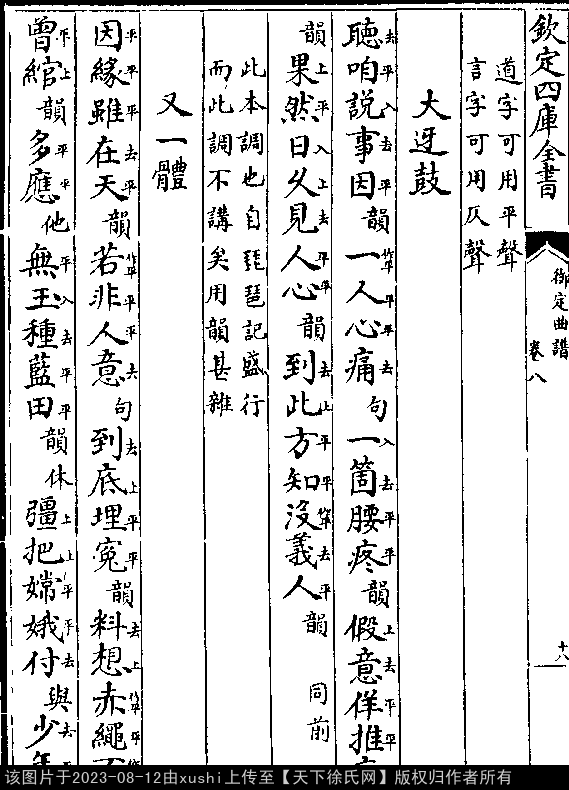 欽定四庫全書
御定曲譜
卷八
十八
道字可用平聲
言字可用仄聲
大迓鼓
聽咱說事因韻一人心痛句一箇腰疼韻假意佯推
去平入去平作平平平去入去平平上去平平
韻果然日久見人心韻到此方知沒義人韻 同前
上平入上去平平去上平平作平去平
此本調也自琵琶記盛行
而此調不講矣用韻甚雜
又一體
因緣雖在天韻若非人意句到底埋寃韻料想赤繩不
平平平去平作平平平去去上平平去上作平平
曾綰韻多應他無玉種藍田韻休彊把嫦娥付與少年
平上平平平入去平平上上平平去去平
该图片于2023-08-12由xushi上传至【天下徐氏网】版权归作者所有